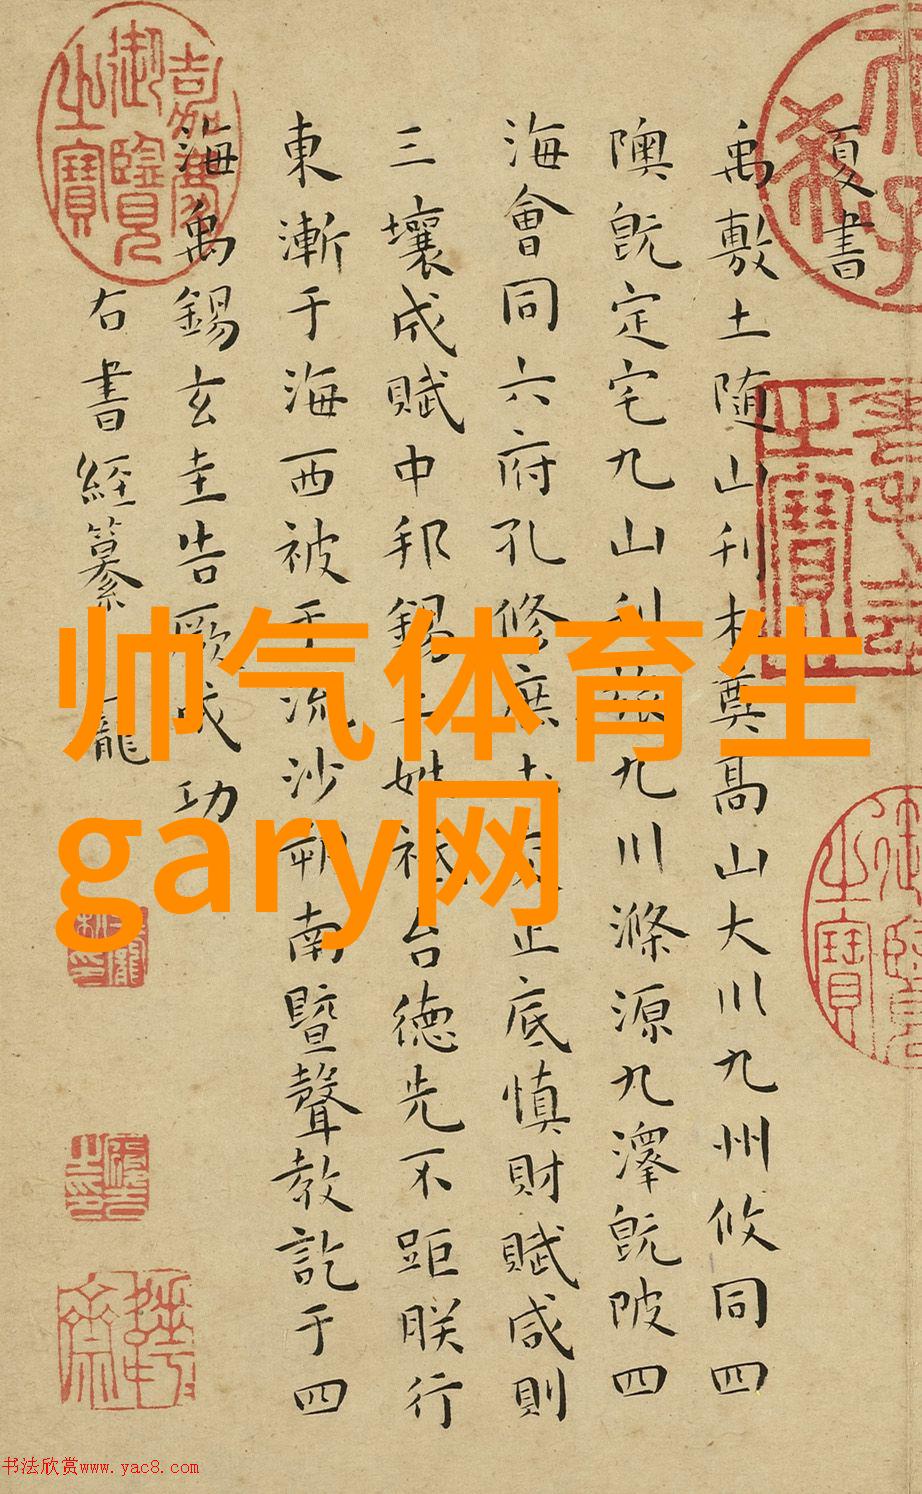 夏書
禹敷土随山刋木奠髙山大川九州攸同四
隩旣定宅九山刋旅九川滌源九澤旣陂四
海會同六府孔修庶土交正底慎財賦咸則
三壤成賦中邦錫土姓祗台德先不距朕行
東漸于海西被于流沙朔南曁聲教訖于四
海禹錫玄圭告厥成功
右書經纂
嘉慶御覽之寶
帅气体育生
gary网
书法欣赏www.yac8.com